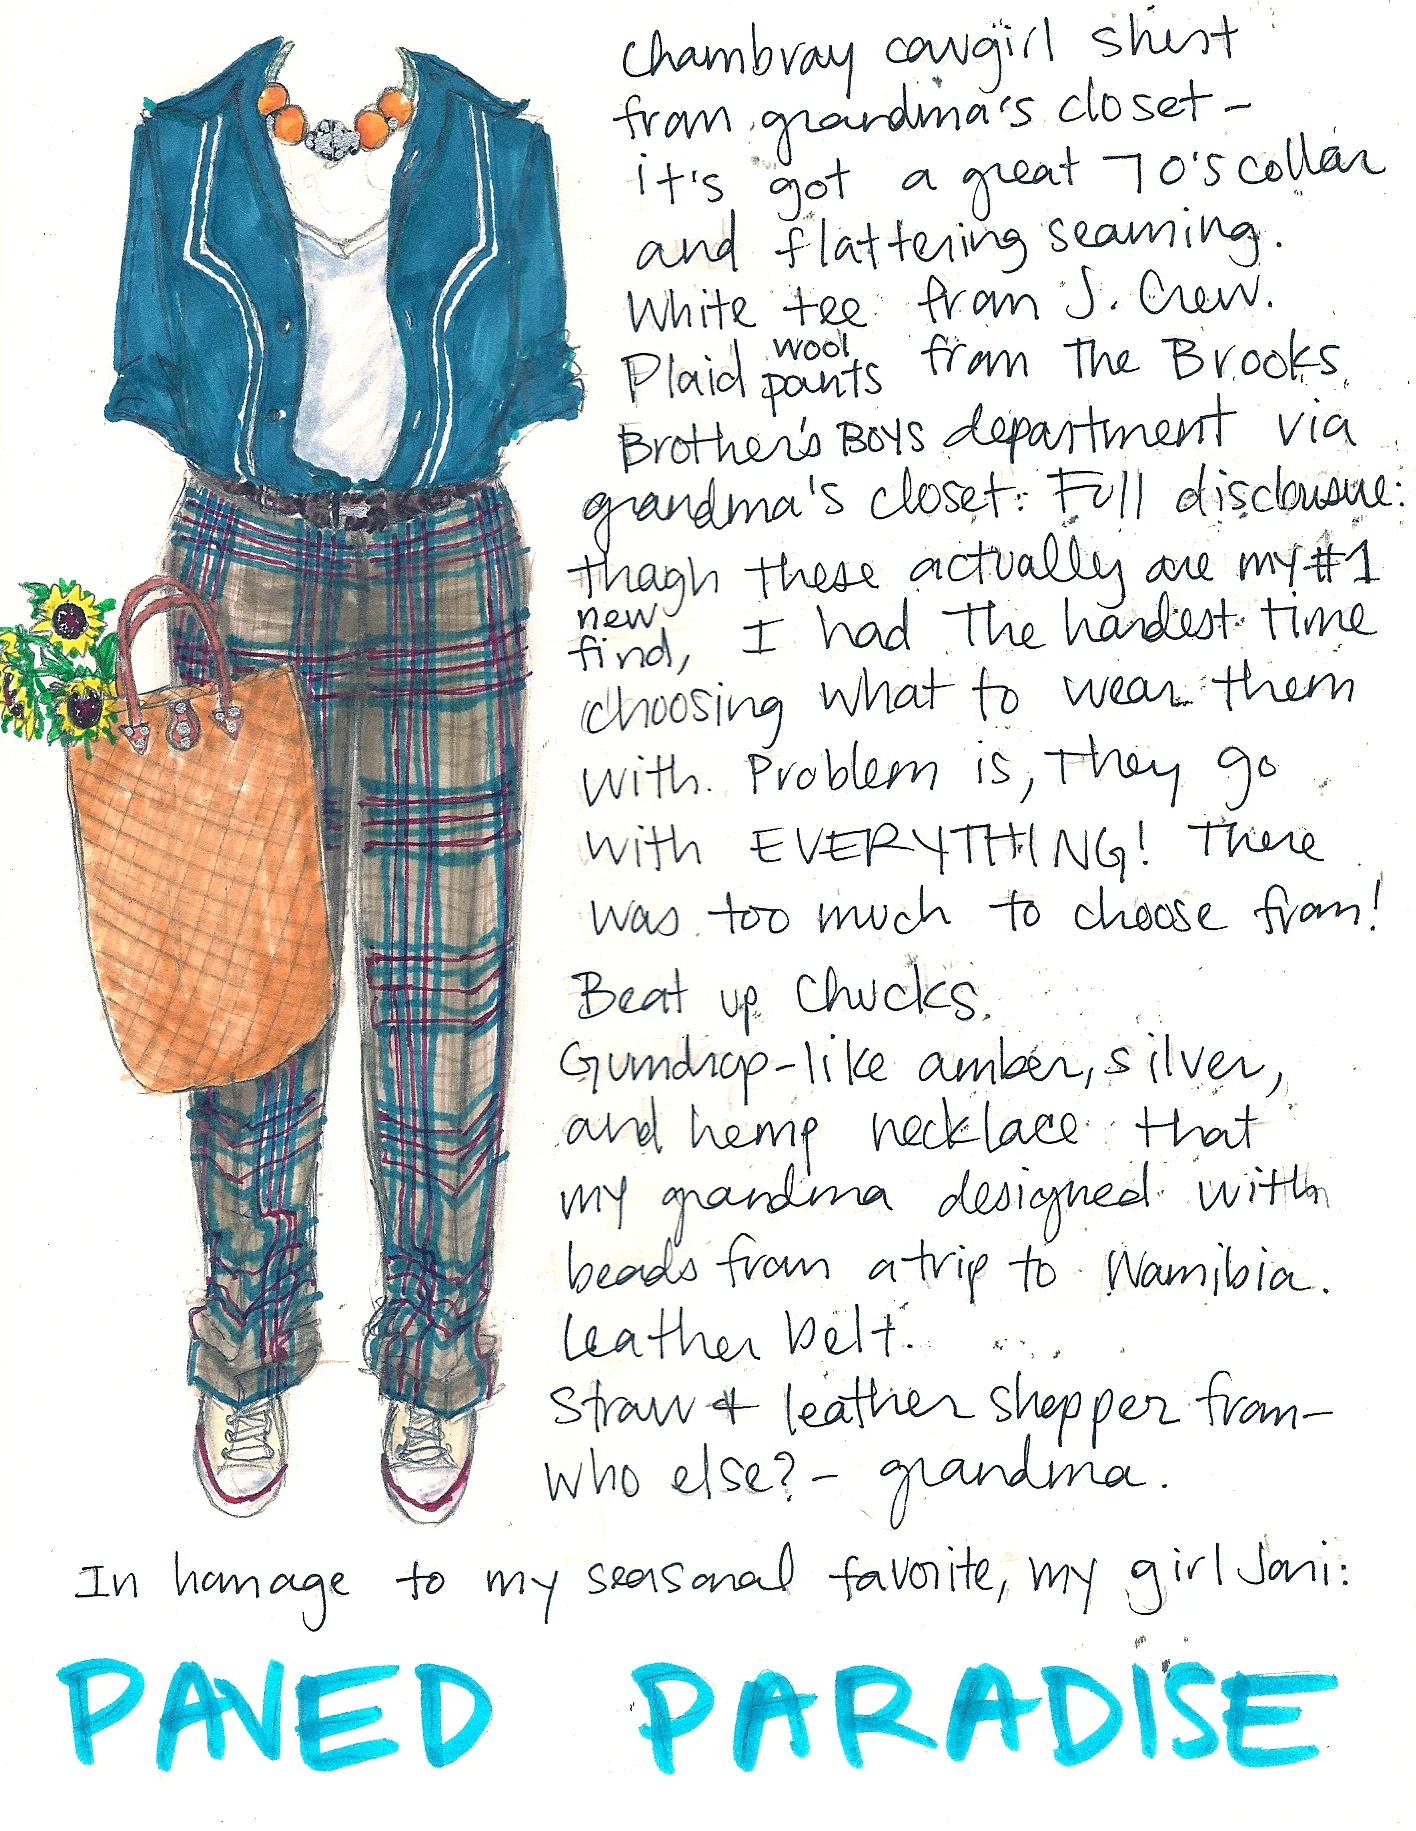 Chambray cowgirl shirt
from grandma's closet -
it's got a great 70's collar
and flattering seaming.
White tee from J. Crew.
Plaid wool pants from the Brooks
Brother's BOYS department via
grandma's closet. Full disclosure:
though these actually are my #1
new find, I had the hardest time
choosing what to wear them
with. Problem is, they go
with EVERYTHING! There
was too much to choose from!
Beat up Chucks.
Gumdrop-like amber, silver,
and hemp necklace that
my grandma designed with
beads from a trip to Namibia.
Leather belt.
Straw & leather shopper from -
who else? - grandma.
In homage to my seasonal favorite, my girl Joni:
PAVED PARADISE